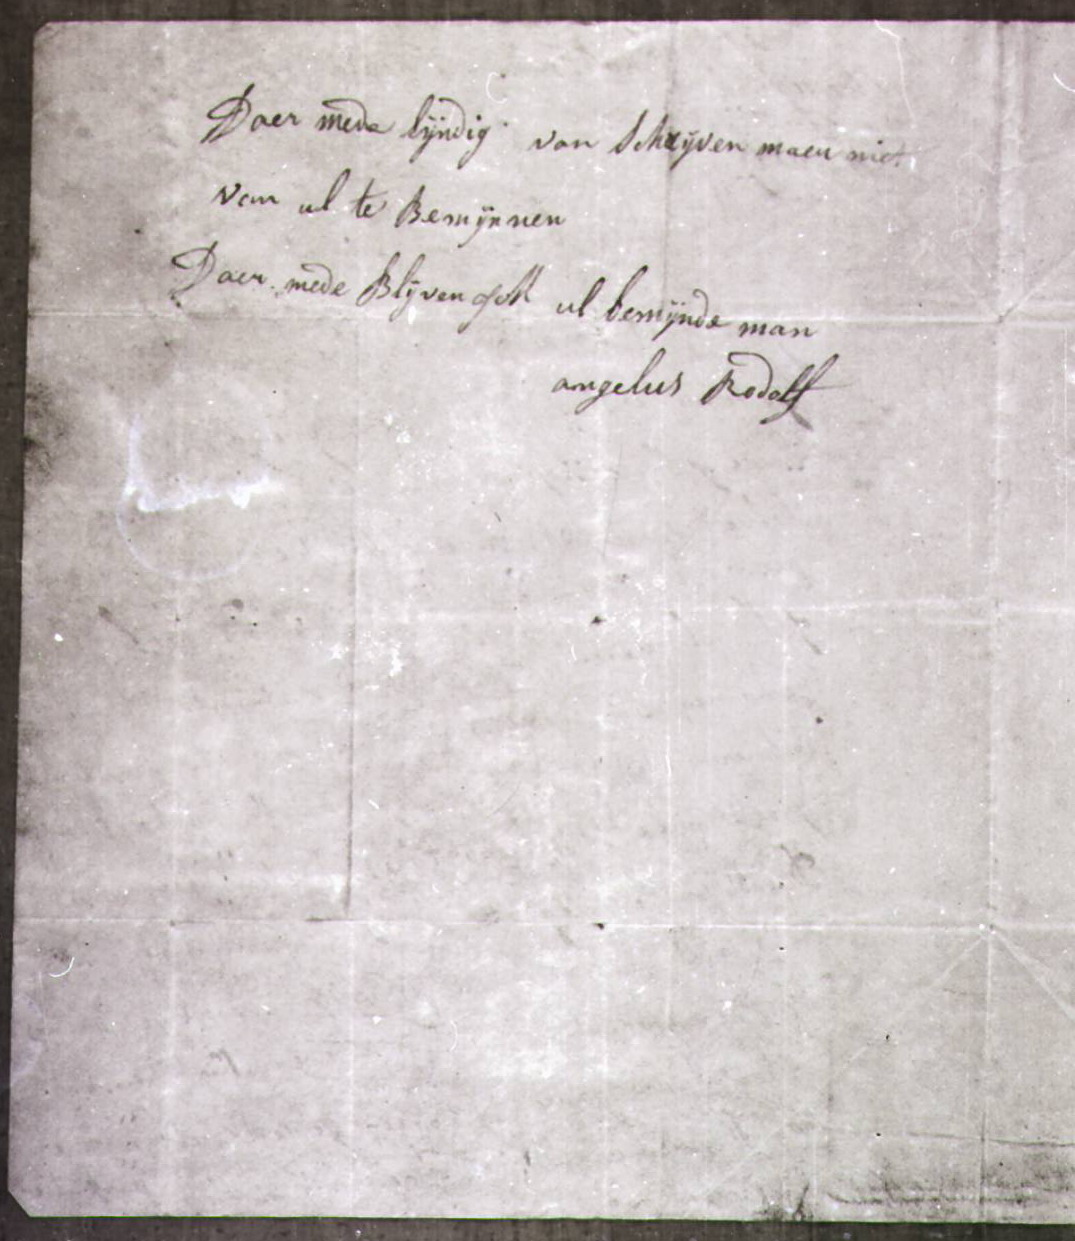 Daer mede Eyndig van Schrijven maeu niet
van ul te Bemijnnen
Daer mede Blijven ul bemijnde man
angelus Rodolf